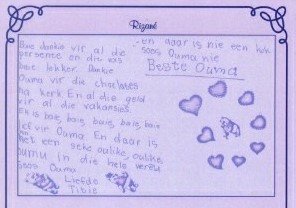 Rizané
Baie dankie vir al die
persente en die vois
baie lekker. Dankie
Ouma vir die chocolates
na kerk. En al die geld
vir al die vakansies.
En is baie, baie, baie, baie, baie
lief vir Ouma. En daar is
net een seke oulike, oulike,
oumu in die hele
soos Ouma
Liefde
en daar is nie een
soos Ouma nie
Beste Ouma